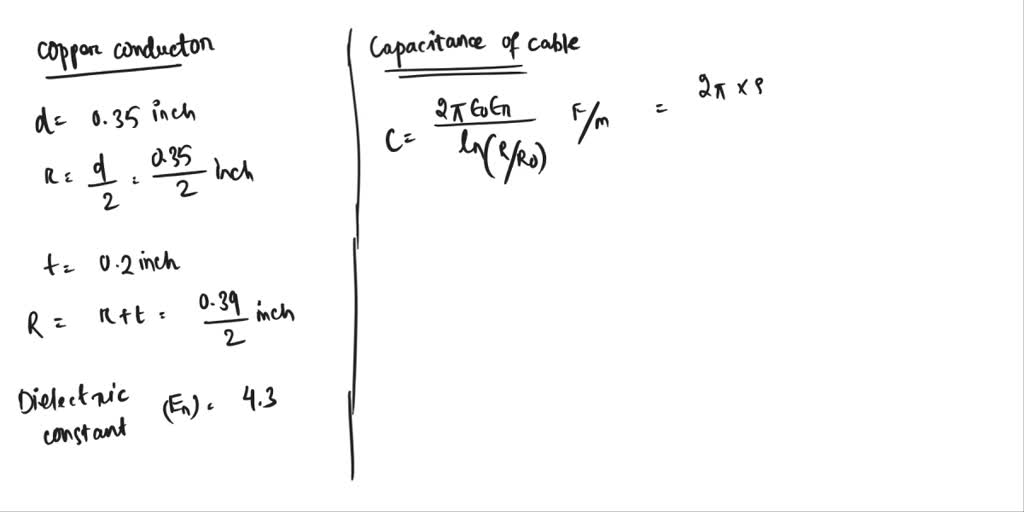 Copper conductor
d = 0.35 inch
r = d/2 = 0.35/2 inch
t = 0.2 inch
R = r+t = 0.39/2 inch
Dielectric constant (Er) = 4.3
Capacitance of cable
C = 2π ε0 εr / ln(R/R0) F/m = 2π × 8